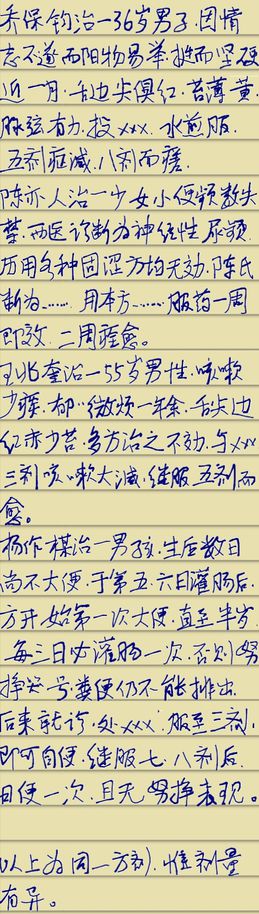 乔保钧治一36岁男子,因情
志不遂而阳物易举挺而坚硬
近一月.舌边尖俱红.苔薄黄.
脉弦有力.投xxx.水煎服.
五剂症减.八剂而瘥.
陈亦人治一少女小便频数失
禁.西医诊断为神经性尿频.
历用各种固涩方均无效.陈氏
断为…… 用本方……服药一周
即效.二周痊愈。
王兆奎治一55岁男性.咳嗽
少痰.郁郁微烦一年余.舌尖边
红赤少苔.多方治之不效.与xxx
三剂咳嗽大减.继服五剂而
愈。
杨作楳治一男孩.生后数日
尚不大便.于第五.六日灌肠后.
方开始第一次大便.直至半岁.
每三日必灌肠一次.否则努
挣哭号.粪便仍不能排出.
后来就诊.处xxx.服至三剂.
即可自便.继服七.八剂后.
日便一次.且无努挣表现。
以上为同一方剂.惟剂量
有异。